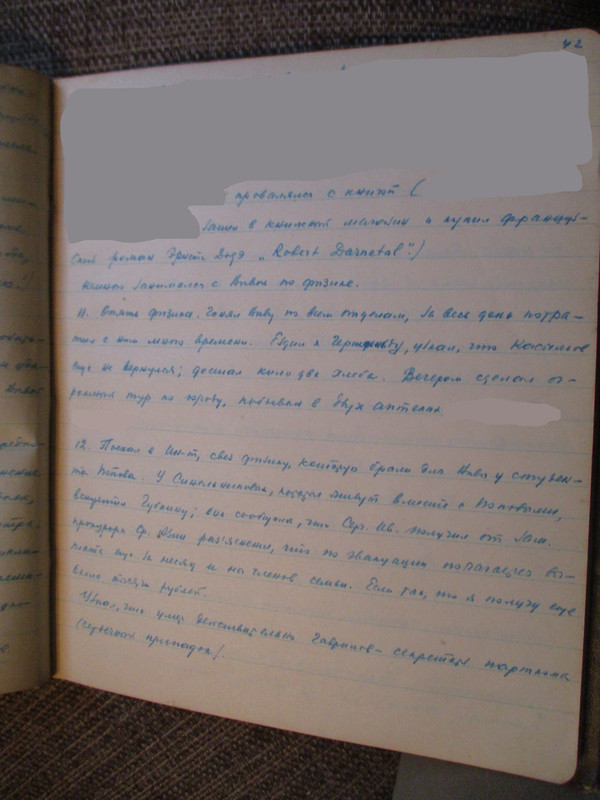 42
провалялся с книгой (
зашел в книжный магазин и купил француз-
ский роман Эрнста Додэ „Robert Darnetal“)
занимался с Вивой по физике.
11. Опять физика. Гонял Виву по всем отделам, за весь день потра-
тил с ним много времени. Ездил к, узнал, что
еще не вернулся; достал кило два хлеба. Вечером сделал ог-
ромный тур по городу, побывал в двух аптеках
12. Поехал в Ин-т, свез физику, которую брали для Вивы у студен-
та Попова. У Синельниковых, которые живут вместе с Поповыми,
встретил Губкину; она сообщила, что Серг. Ив. получил от Зам.
прокурора Ср. Азии разъяснение, что по эвакуации полагается вы-
плата еще за месяц и на членов семьи. Если так, то я получу еще
около тысячи рублей.
Узнал, что умер Гаврилов - секретарь парткома
(сердечный припадок).